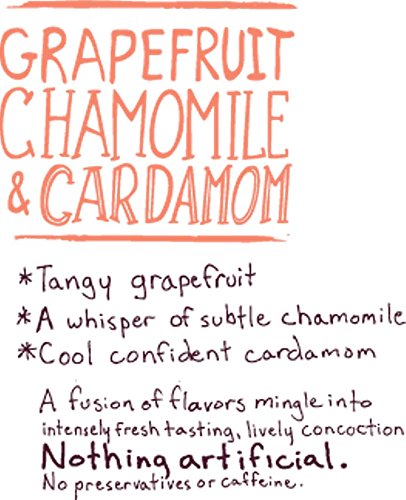 GRAPEFRUIT
CHAMOMILE
& CARDAMOM
*Tangy grapefruit
*A whisper of subtle chamomile
*Cool confident cardamom
A fusion of flavors mingle into
intensely fresh tasting, lively concoction
Nothing artificial.
No preservatives or caffeine.